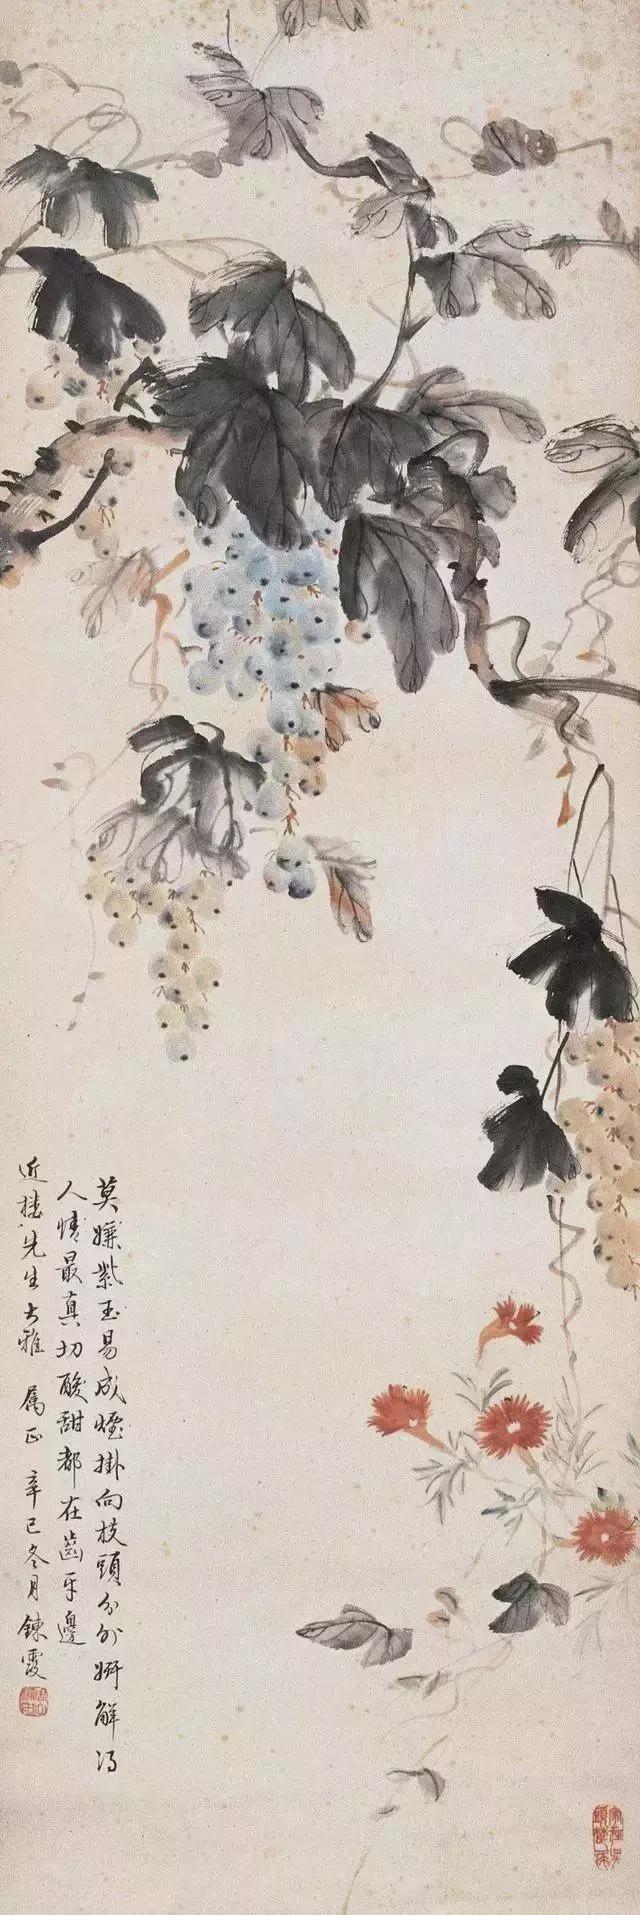 莫嫌紫玉易成煙掛向枝頭分外妍解得
人情最真切酸甜都在齒牙邊
近先生大雅 属正 辛巳冬月鍊霞
家在吳頭楚尾